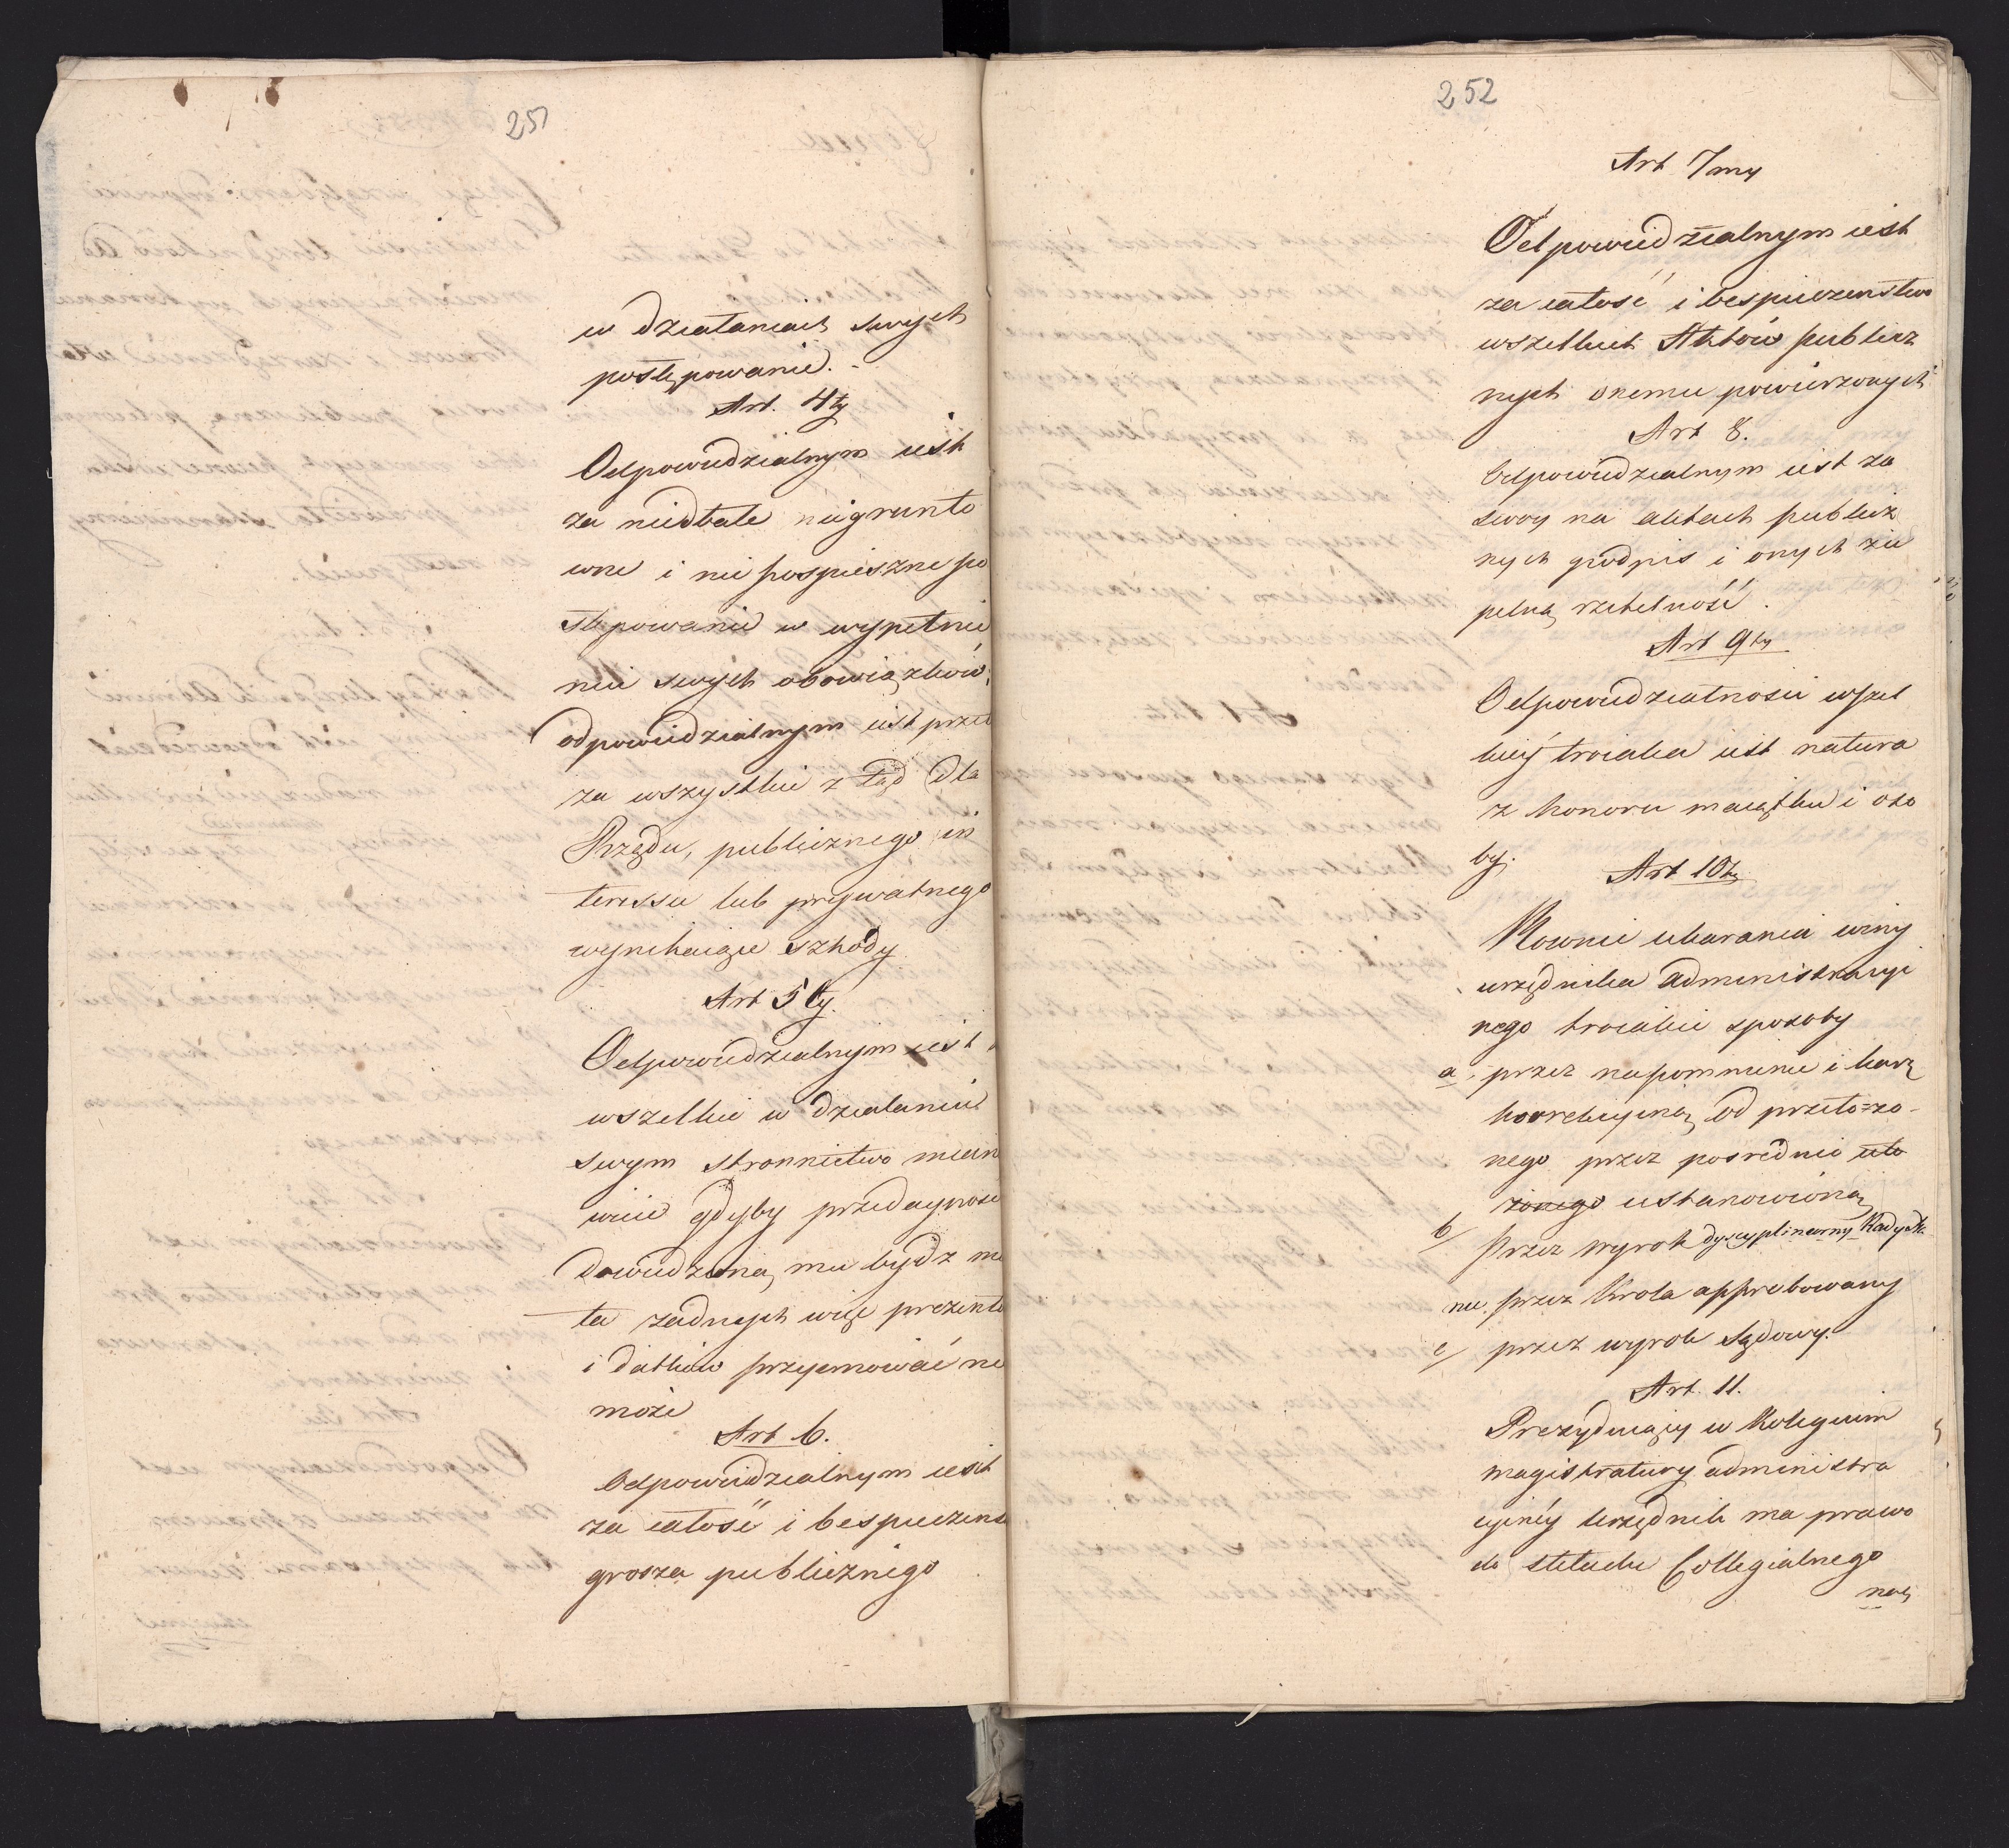 251
w działaniach swych
postępowanie.
Art. 4ty
Odpowiedzialnym iest
za niedbałe niegrunto
wne i nie pospieszne po
stępowanie w wypełnie
niu swych obowiązków,
odpowiedzialnym iest przeto
za wszystkie z tąd dla
Rządu, publicznego in
teressu lub prywatnego
wynikaiące szkody
Art 5ty.
Odpowiedzialnym iest
wszelkie w działaniu
swym stronnictwo miano
wicie gdyby przedaynosc
dowiedzioną mu bydz mo
ta zadnych więc prezento
i datków przyimować nie
może
Art 6.
Odpowiedzialnym iest
za całość i bespieczenst
grosza publicznego
252
Art 7my
Odpowiedzialnym iest
za całość i bespieczenstwo
wszelkich Aktów publicz
nych onemu powierzonych
Art 8.
Odpowiedzialnym iest za
swoy na aktach publicz
nych podpis i onych zu
pełną rzetelność.
Art 9ty
Odpowiedzialnosci wszel
kiéy troiaka iest natura
z honoru maiątku i oso
by.
Art 10ty
Rownie ukarania winy
urzędnika administracyi
nego troiakie sposoby
a, przez napomnienie i karę
korrekcyiną od przełożo-
nego przez posrednio uło
żonego ustanowioną
b/ przez wyrok dyscyplinarny Rady Sta
nu, przez Krola approbowany
c/ przez wyrok Sądowy.
Art. 11.
Prezyduiący w Kolegium
magistratury administra
cyinéy Urzędnik ma prawo
do składu Collegialnego
na